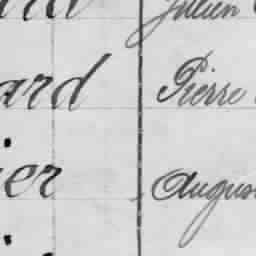 Julien
ard Pierre
ier Augus